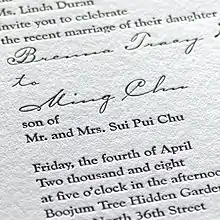 Ms. Linda Duran
invite you to celebrate
the recent marriage of their daughter
Brenna Tracy
to
Ming Chu
son of
Mr. and Mrs. Sui Pui Chu
Friday, the fourth of April
Two thousand and eight
at five o'clock in the afternoo
Boojum Tree Hidden Garde
North 36th Street